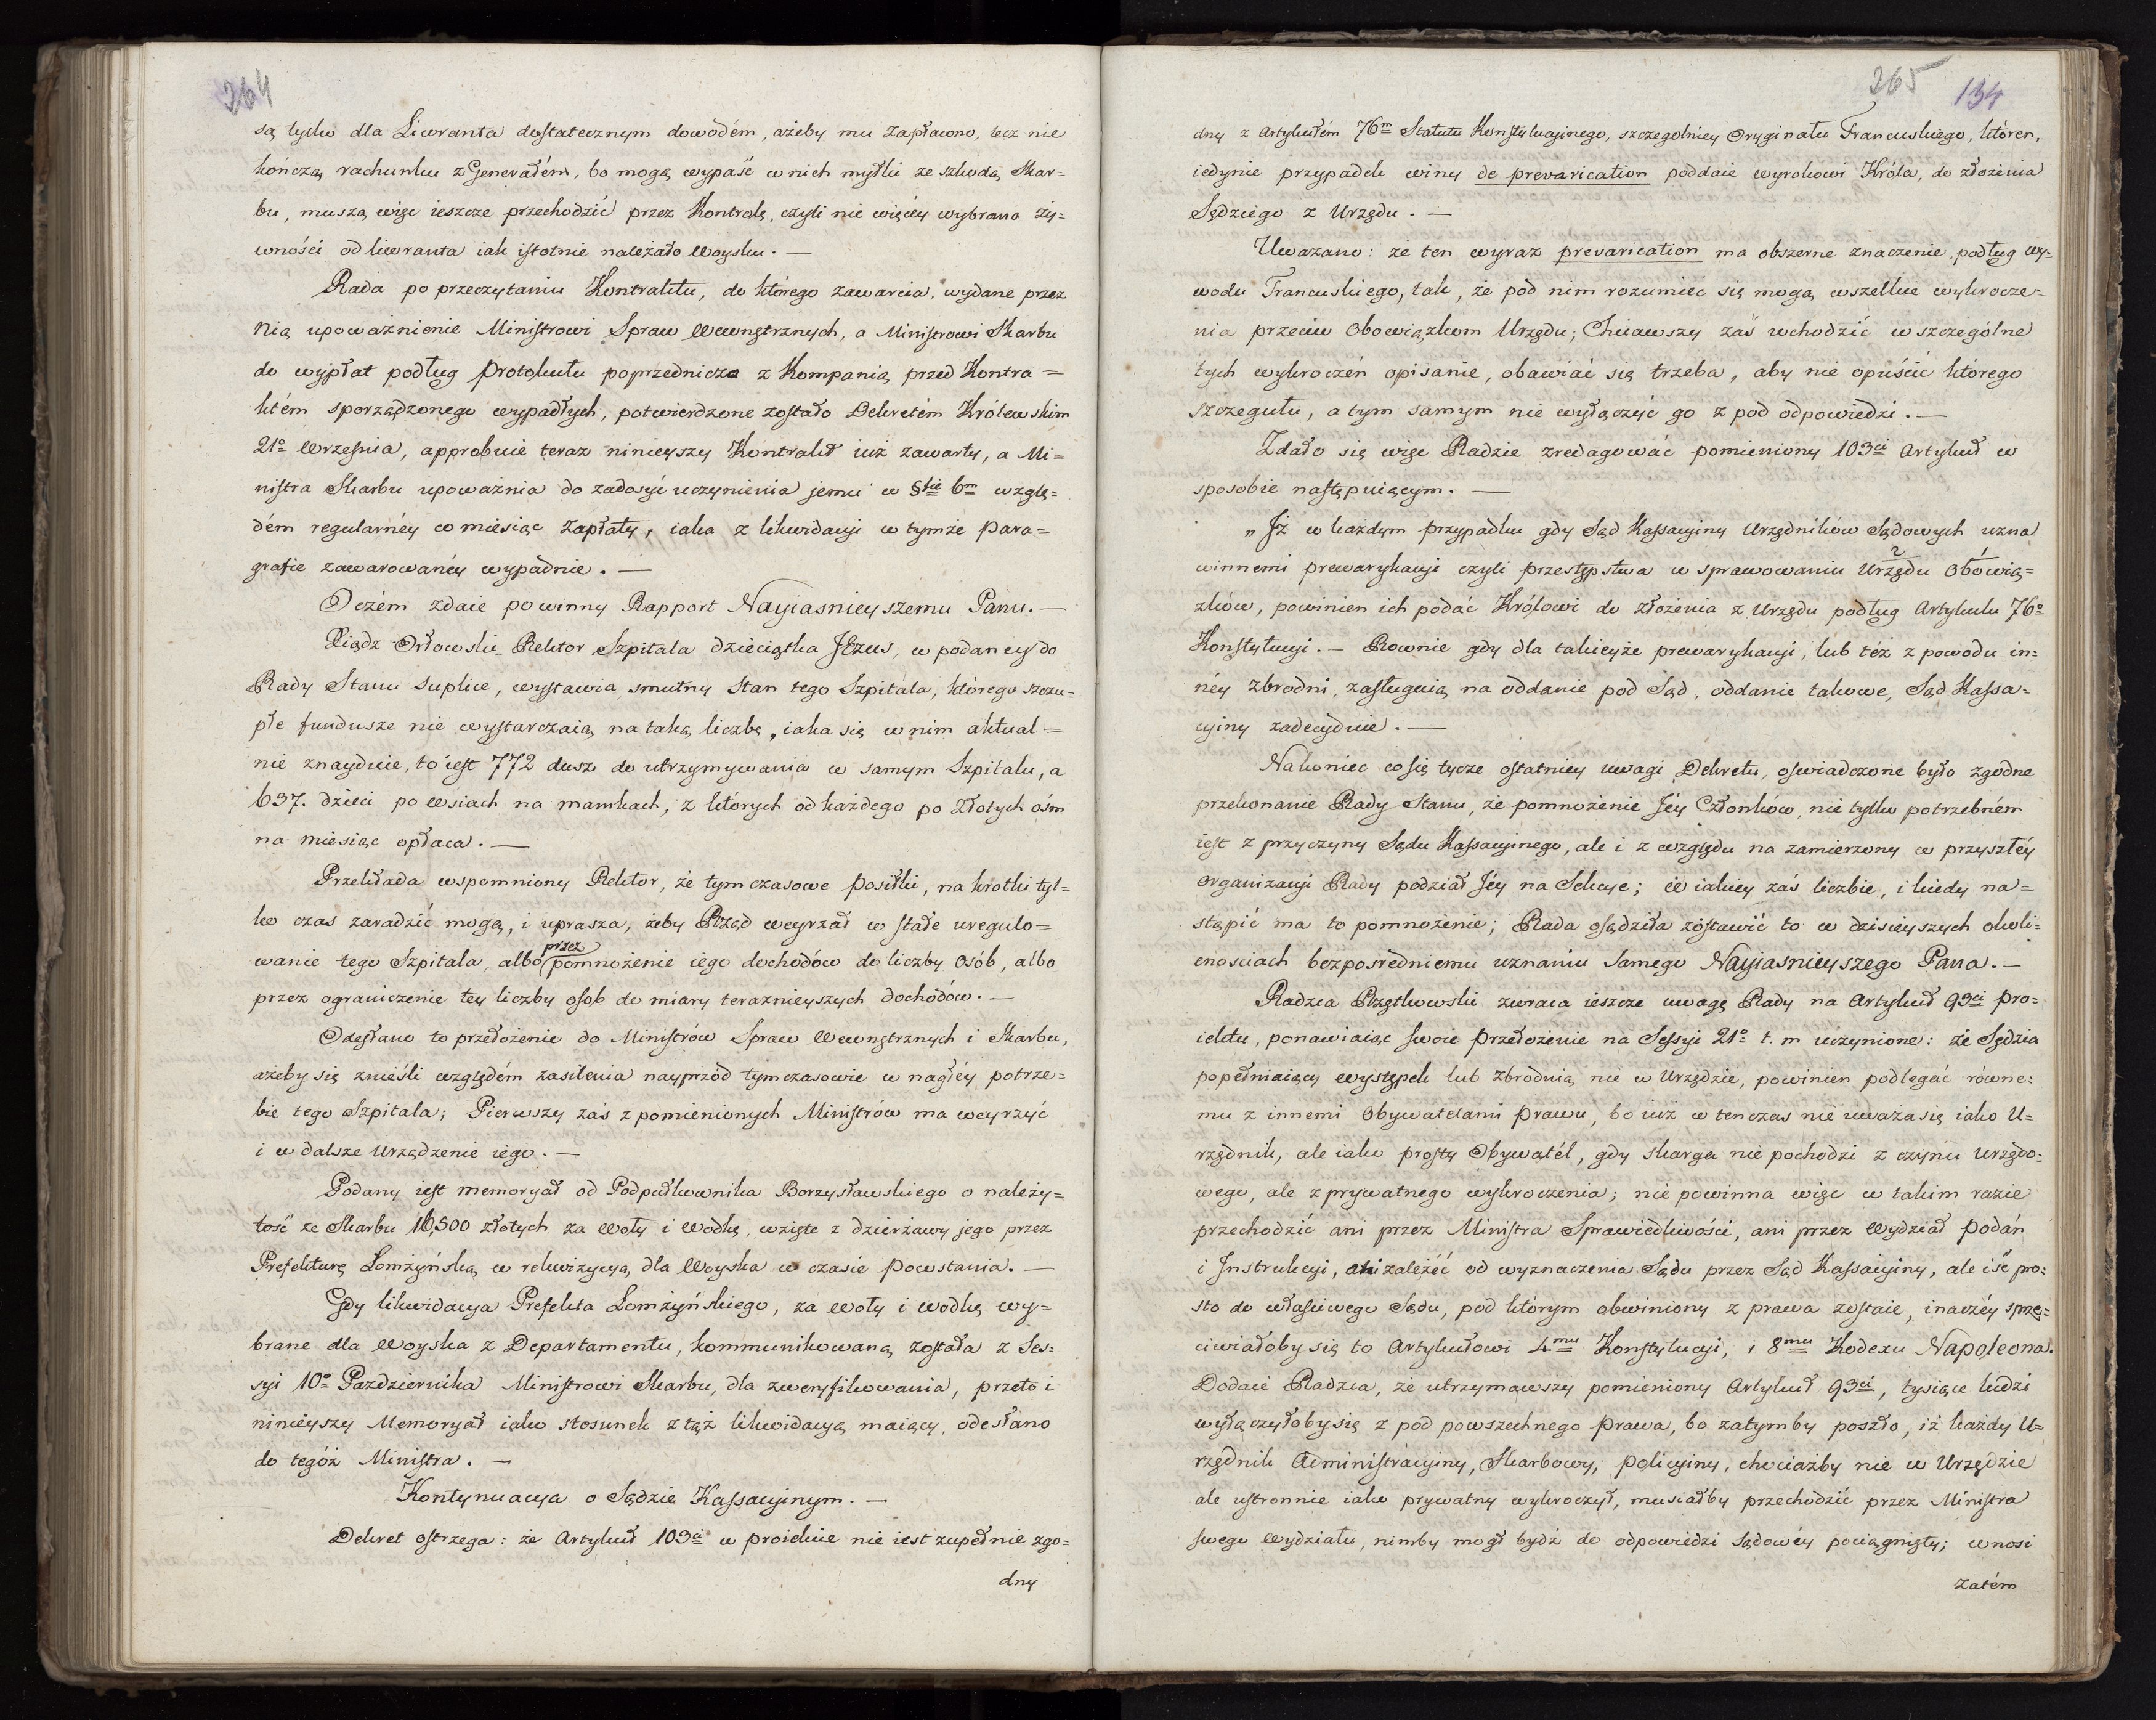 264
są tylko dla Liwranta dostatecznym dowodém, ażeby mu zapłacono, lecz nie
kończą rachunku z Generałém, bo mogą wypaść w nich myłki ze szkodą Skar=
bu, muszą więc ieszcze przechodzić przez Kontrolę, czyli nie więcéy wybrano ży=
wności od liwranta iak istotnie należało Woysku. —
Rada po przeczytaniu Kontraktu, do którego zawarcia, wydane przez
Nią upoważnienie Ministrowi Spraw Wewnętrznych, a Ministrowi Skarbu
do wypłat podług Protokułu poprzedniczo z Kompanią przed Kontra=
ktém sporządzonego wypadłych, potwierdzone zostało Dekretém Królewskim
21º Września, approbuie teraz ninieyszy Kontrakt iuż zawarty, a Mi=
nistra Skarbu upoważnia do zadosyć uczynienia jemu w §fie 6m wzglę=
dém regularnéy co miesiąc zapłaty, iaka z likwidacyi w tymże Para=
grafie zawarowanéy wypadnie. —
O czém zdaie powinny Rapport Nayiasnieyszemu Panu. —
Xiądz Orłowski Rektor Szpitala dzieciątka JEzus, w podaney do
Rady Stanu suplice, wystawia smutny stan tego Szpitala, którego szczu=
płe fundusze nie wystarczaią na taką liczbę, iaka się w nim aktual=
nie znayduie, to iest 772 dusz do utrzymywania w samym Szpitalu, a
637. dzieci po wsiach na mamkach, z których od każdego po złotych ośm
na miesiąc opłaca. —
Przekłada wspomniony Rektor, że tymczasowe posiłki, na krotki tyl=
ko czas zaradzić mogą, i uprasza, żeby Rząd weyrzał w stałe uregulo=
wanie tego Szpitala, albo przez pomnożenie iego dochodów do liczby osób, albo
przez ograniczenie tey liczby osob do miary teraznieyszych dochodów. —
Odesłano to przełożenie do Ministrów Spraw Wewnętrznych i Skarbu,
ażeby się znieśli względém zasilenia nayprzód tymczasowie w nagłéy potrze=
bie tego Szpitala; Pierwszy zaś z pomienionych Ministrów ma weyrzyć
i w dalsze urządzenie iego. —
Podany iest memoryał od Podpułkownika Borzysławskiego o należy=
tość ze Skarbu 16,500 złotych za woły i wodkę, wzięte z dzierżawy jego przez
Prefekturę Łomżyńską w rekwizycyą dla Woyska w czasie powstania. —
Gdy likwidacya Prefekta Łomżyńskiego, za woły i wodkę wy=
brane dla Woyska z Departamentu, kommunikowaną została z Ses=
syi 10º Pazdziernika Ministrowi Skarbu, dla zweryfikowania, przeto i
ninieyszy Memoryał iako stosunek z tąż likwidacyą maiący, odesłano
do tegóż Ministra. —
Kontynuacya o Sądzie Kassacyinym. —
Dekret ostrzega: że Artykuł 103ci w proiekcie nie iest zupełnie zgo=
dny
265
134
dny z Artykułém 76m Statutu Konstytucyinego, szczegolniey Oryginału Francuskiego, któren,
iedynie przypadek winy de prevarication poddaie wyrokowi Króla, do złożenia
Sędziego z Urzędu. —
Uważano: że ten wyraz prevarication ma obszerne znaczenie, podług wy=
wodu Francuskiego, tak, że pod nim rozumieć się mogą wszelkie wykrocze=
nia przeciw obowiązkom Urzędu; Chciawszy zaś wchodzić w szczególne
tych wykroczéń opisanie, obawiać się trzeba, aby nie opuścić którego
szczegułu, a tym samym nie wyłączyć go z pod odpowiedzi. —
Zdało się więc Radzie zredagować pomieniony 103ci Artykuł w
sposobie następuiącym. —
„Jż w każdym przypadku gdy Sąd Kassacyiny Urzędników Sądowych uzna
winnemi prewarykacyi czyli przestępstwa w sprawowaniu Urzędu obowią=
zków, powinien ich podać Królowi do złożenia z Urzędu podług Artykułu 76º
Konstytucyi. — Rownie gdy dla takieyże prewarykacyi, lub téż z powodu in=
néy zbrodni, zasługuią na oddanie pod Sąd, oddanie takowe, Sąd Kassa=
cyiny zadecyduie. —
Nakoniec co się tycze ostatniey uwagi Dekretu, oswiadczone było zgodne
przekonanie Rady Stanu, że pomnożenie Jéy Członków, nie tylko potrzebném
iest z przyczyny Sądu Kassacyinego, ale i z względu na zamierzony w przyszłéy
organizacyi Rady podział Jéy na Sekcye; w iakiey zaś liczbie, i kiedy na=
stąpić ma to pomnożenie; Rada osądziła zostawić to w dzisieyszych okoli=
cznosciach bezposredniemu uznaniu Samego Nayiasnieyszego Pana. —
Radzca Rzętkowski zwraca ieszcze uwagę Rady na Artykuł 93ci pro=
iektu, ponawiaiąc swoie przełożenie na Sessyi 21º t. m uczynione: że Sędzia
popełniaiący występek lub zbrodnią nie w Urzędzie, powinien podlegać równe=
mu z innemi Obywatelami prawu, bo iuż w tenczas nie uważa się iako U=
rzędnik, ale iako prosty Obywatél, gdy skarga nie pochodzi z czynu urzędo=
wego, ale z prywatnego wykroczenia; nie powinna więc w takim razie
przechodzić ani przez Ministra Sprawiedliwości, ani przez Wydział podań
i Jnstrukcyi, ani zależéć od wyznaczenia Sądu przez Sąd Kassacyiny, ale iść pro=
sto do właściwego Sądu, pod którym obwiniony z prawa zostaie, inaczéy sprze=
ciwiałoby się to Artykułowi 4mu Konstytucyi, i 8mu Kodexu Napoleona.
Dodaie Radzca, że utrzymawszy pomieniony Artykuł 93ci, tysiące ludzi
wyłączyłoby się z pod powszechnego prawa, bo zatymby poszło, iż każdy U=
rzędnik Administracyiny, Skarbowy, policyiny, chociażby nie w Urzędzie
ale ustronnie iako prywatny wykroczył, musiałby przechodzić przez Ministra
swego Wydziału, nimby mogł bydź do odpowiedzi Sądowéy pociągnięty; wnosi
zatém